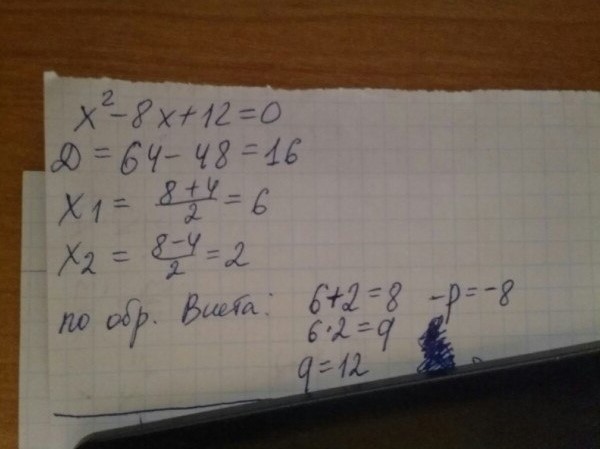 x² - 8x + 12 = 0
D = 64 - 48 = 16
x1 = (8+4)/2 = 6
x2 = (8-4)/2 = 2
по обр. Виета: 6+2=8 -p=-8
6·2=q
q=12